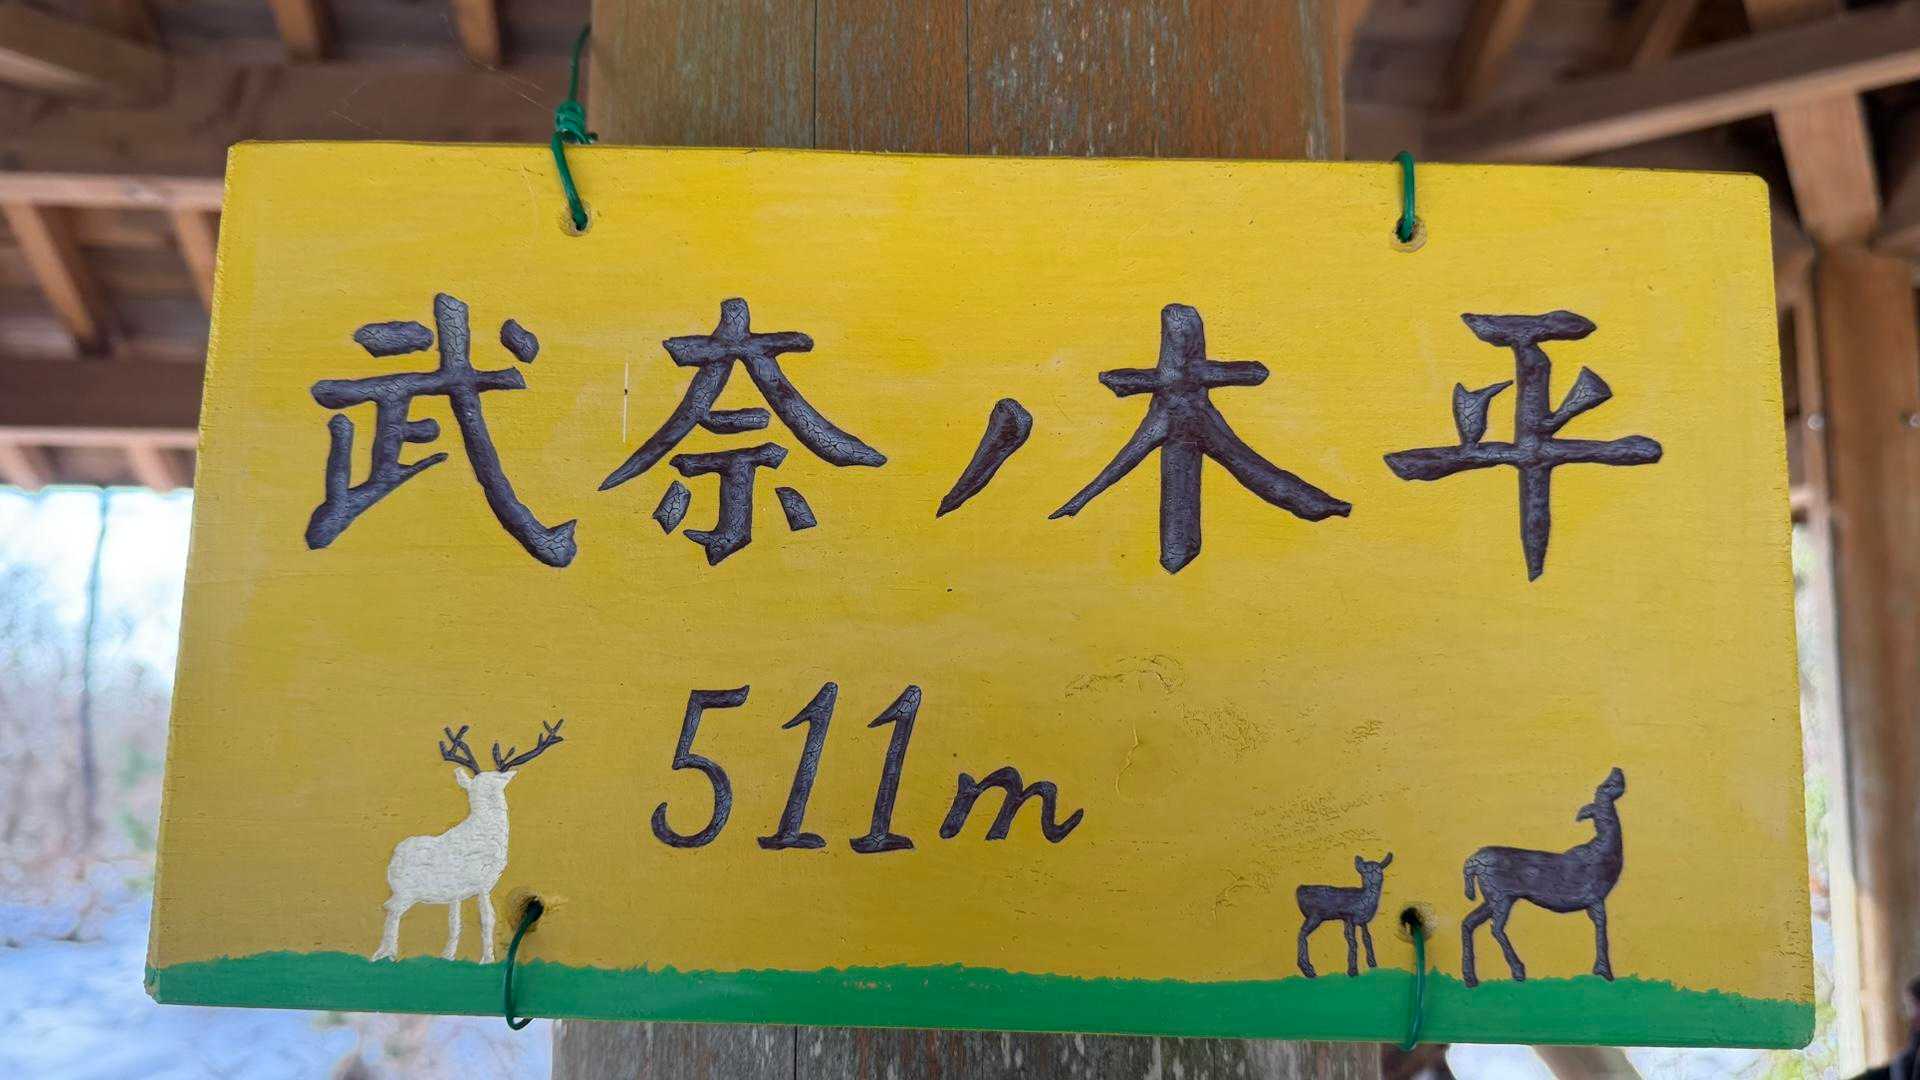 武奈ノ木平
511m